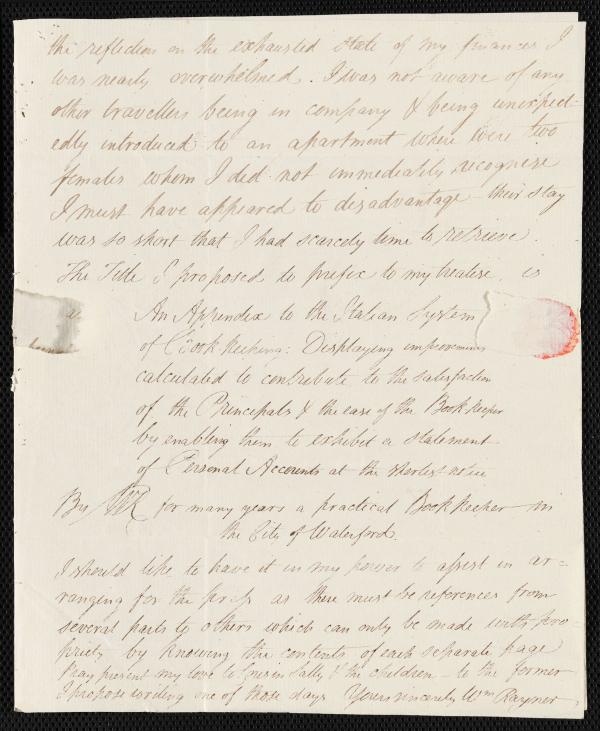 the reflection on the exhausted state of my finances I
was nearly overwhelmed. I was not aware of any
other travellers being in company & being unexpect-
edly introduced to an apartment where were two
females whom I did not immediately recognise
I must have appeared to disadvantage their stay
was so short that I had scarcely time to retrieve.
The Title I proposed to prefix to my treatise is
An Appendix to the Italian System
of Book keeping: Displaying improvements
calculated to contribute to the satisfaction
of the Principals & the ease of the Book keeper
by enabling them to exhibit a statement
of Personal Accounts at the shortest notice
By WR for many years a practical Book keeper in
the City of Waterford.
I should like to have it in my power to assist in ar-
ranging for the press as there must be references from
several parts to others which can only be made with pro-
priety by knowing the contents of each separate page
Pray present my love to Cousin Sally & the children - to the former
I propose writing one of those days Yours sincerely Wm Rayner